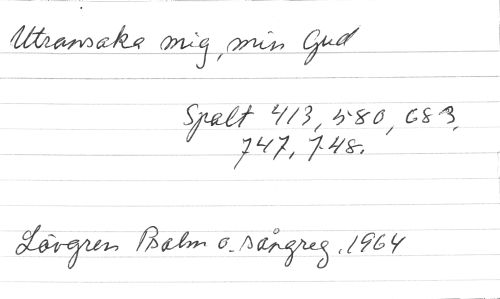 Utransaka mig, min Gud
Spalt 413, 580, 683,
747, 748.
Lövgren Psalm o. sångreg. 1964